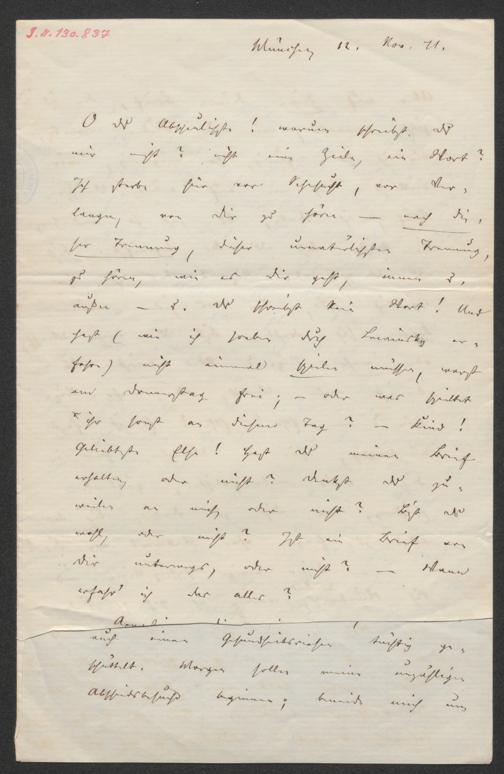 I.N.130.837
München 12. Nov. 71.
O du Abscheulichste! warum schreibst du
mir nicht? nicht eine Zeile, ein Wort?
Ich sterbe hier vor Sehnsucht, vor Ver-
langen, von dir zu hören — nach die-
ser Trennung, dieser unnatürlichsten Trennung,
zu hören, wie es dir geht, innen u.
außen — u. du schreibst kein Wort! Und
hast (wie ich soeben durch Lewinsky er-
fahre) nicht einmal spielen müssen, warst
am Donnerstag frei; — oder was spieltet
ihr sonst an diesem Tag? — Kind!
Geliebteste Else! Hast du meinen Brief
erhalten, oder nicht? Denkst du zu-
weilen an mich, oder nicht? Bist du
wohl, oder nicht? Ist ein Brief von
dir unterwegs, oder nicht? — Wann
erfahr' ich das alles?
auch einen Gesundheitsriesen tüchtig ge-
schüttelt. Morgen sollen meine unzähligen
Abschiedsbesuche beginnen; beneide mich um